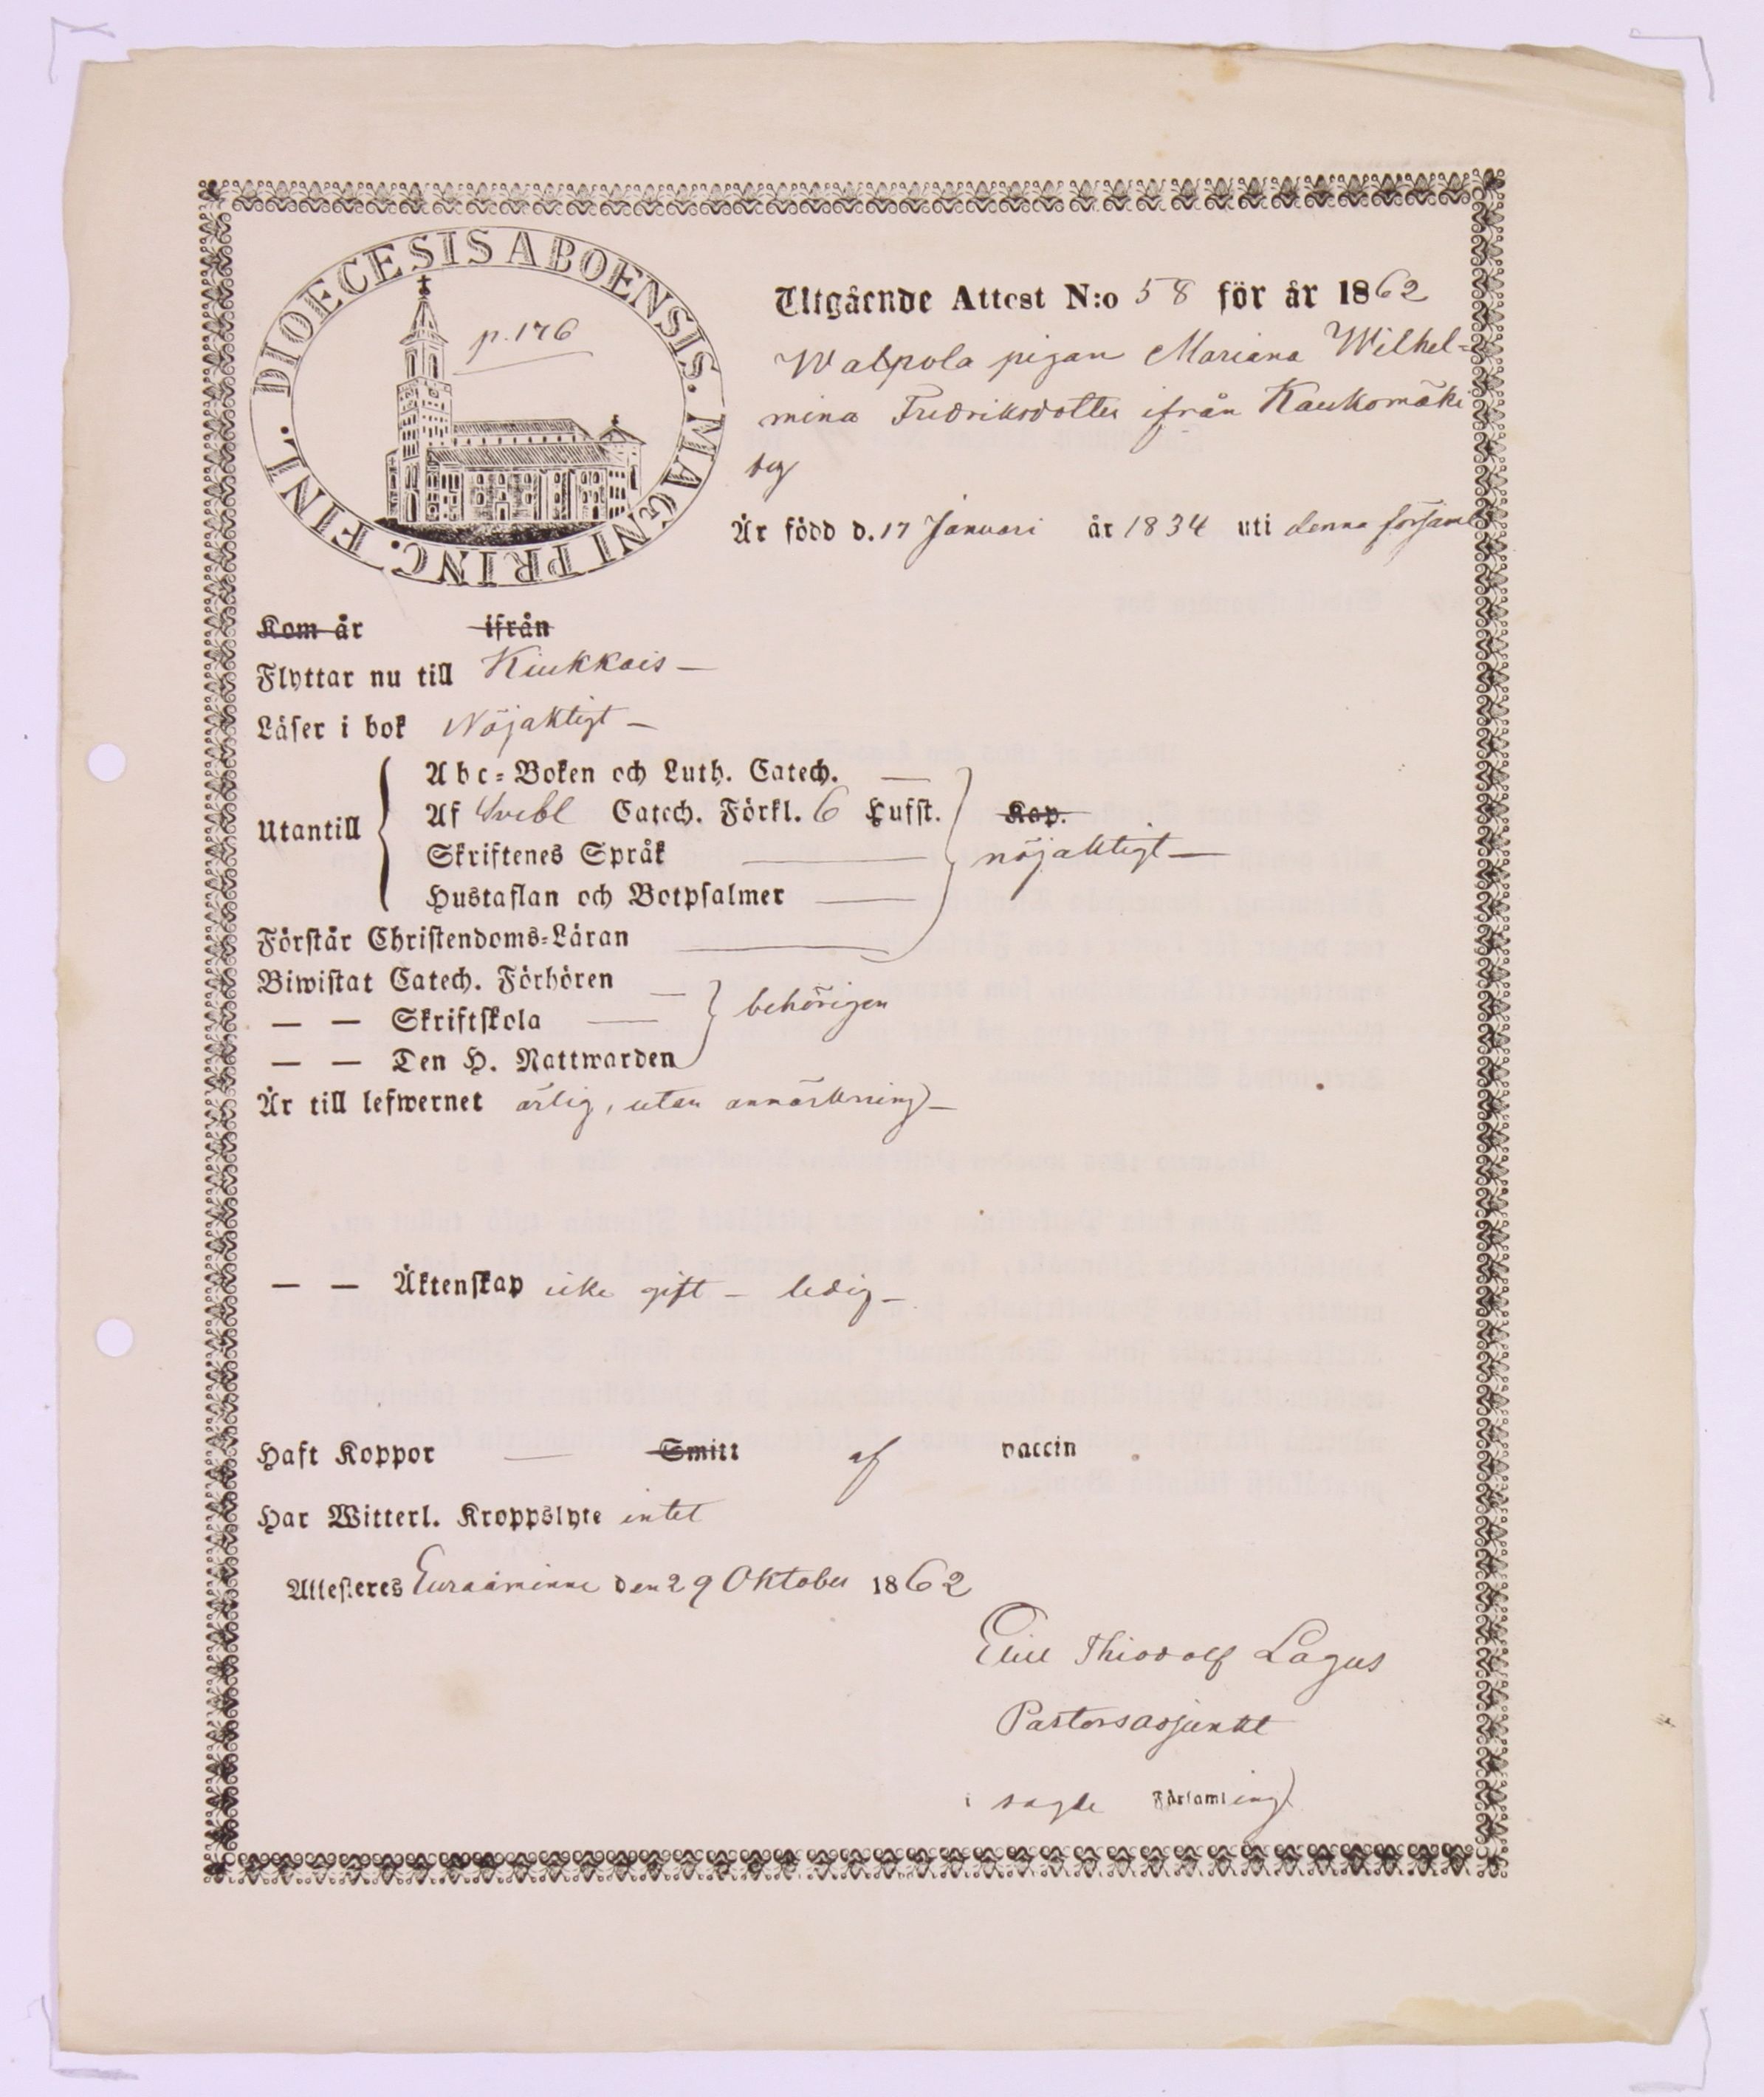 DIOECESIS ABOENSIS. MAGNI PRINC. FINL.
p. 176
Utgående Attest N:o 58 för år 1862
Walpola pigan Mariana Wilhel=
mina Fredriksdotter ifrån Kaukomäki
by
Är född d. 17 Januari år 1834 uti denna församl
Kom år ifrån
Flyttar nu till Kiukkais —
Läser i bok Nöjaktigt —
Utantill
Abc=Boken och Luth. Catech. —
Af Svebl Catech. Förkl. 6 Hufst. Kap.
Skriftenes Språk — nöjaktigt —
Hustaflan och Botpsalmer —
Förstår Christendoms=Läran —
Biwistat Catech. Förhören —
— — Skriftskola — behörigen
— — Den H. Nattwarden
Är till lefwernet ärlig, utan anmärkning —
— — Äktenskap icke gift — ledig —
Haft Koppor — Smitt af vaccin
Har Witterl. Kroppslyte intet
Attesteres Euraåminne den 29 Oktober 1862
Thiodolf Lagus
Pastorsadjunkt
i sagde Församling